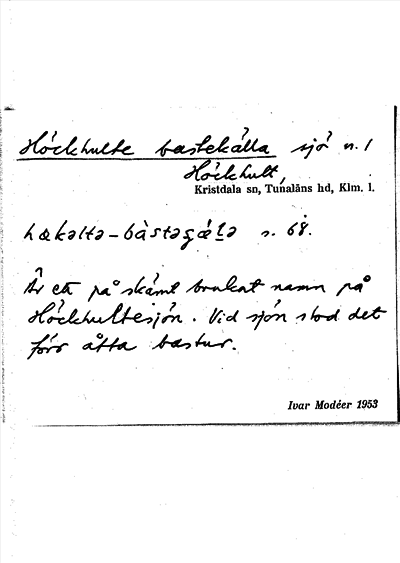 Höckhulte bastekälla sjö n. 1
Höckhult,
Kristdala sn, Tunaläns hd, Klm. l.
hækəltə–bàstəçæ̀lə s. 68.
Är ett på skämt brukat namn på
Höckhultesjön. Vid sjön stod det
förr åtta bastur.
Ivar Modéer 1953